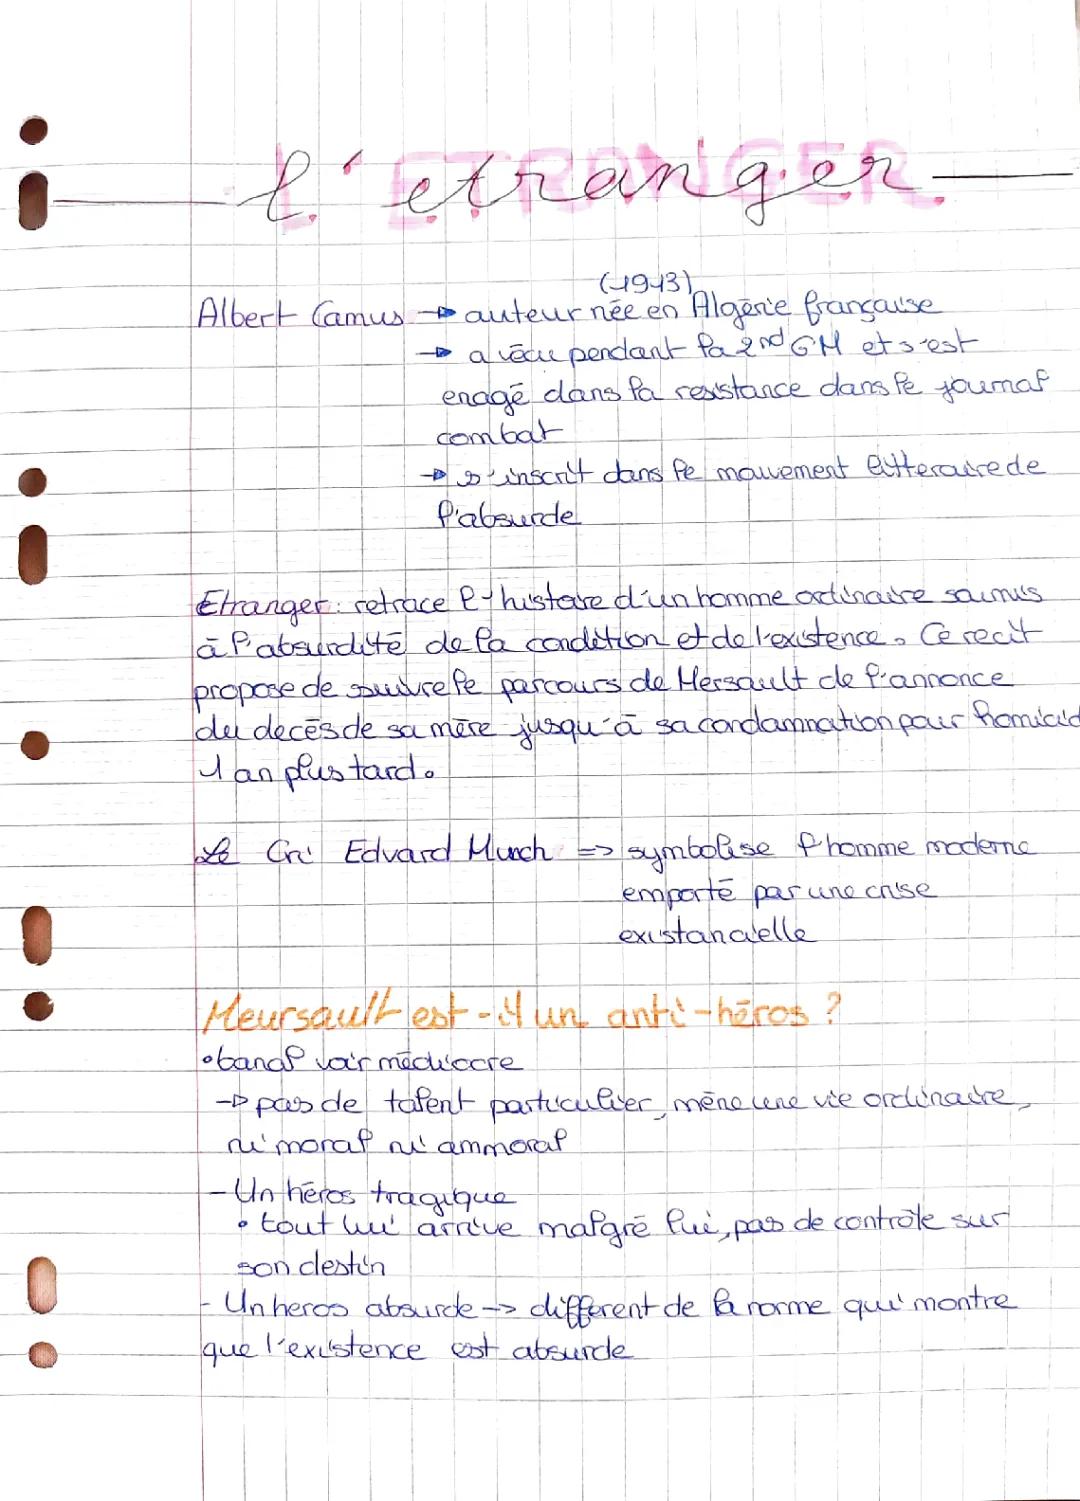 L'ETRANGER
l'etranger
(1913)
Albert Camus → auteur née en Algérie française
→ a vécu pendant la 2nd GM et s'est
enagé dans la resistance dans le journal
combat
→ s'inscrit dans le mouvement litteraire de
l'absurde
Etranger: retrace l'histoire d'un homme ordinaire soumis
à l'absurdité de la condition et de l'existence. Ce recit
propose de suivre le parcours de Mersault de l'annonce
du decés de sa mère jusqu'à sa condamnation pour homicid
1 an plus tard.
Le Cri Edvard Munch => symbolise l'homme moderne
emporté par une crise
existancielle
Meursault est-il un anti-héros ?
• banal voir médiocre
→ pas de talent particulier, mène une vie ordinaire,
ni moral ni ammoral
- Un héros tragique
• tout lui arrive malgré lui, pas de contrôle sur
son destin
- Un heros absurde --> different de la norme qui montre
que l'existence est absurde